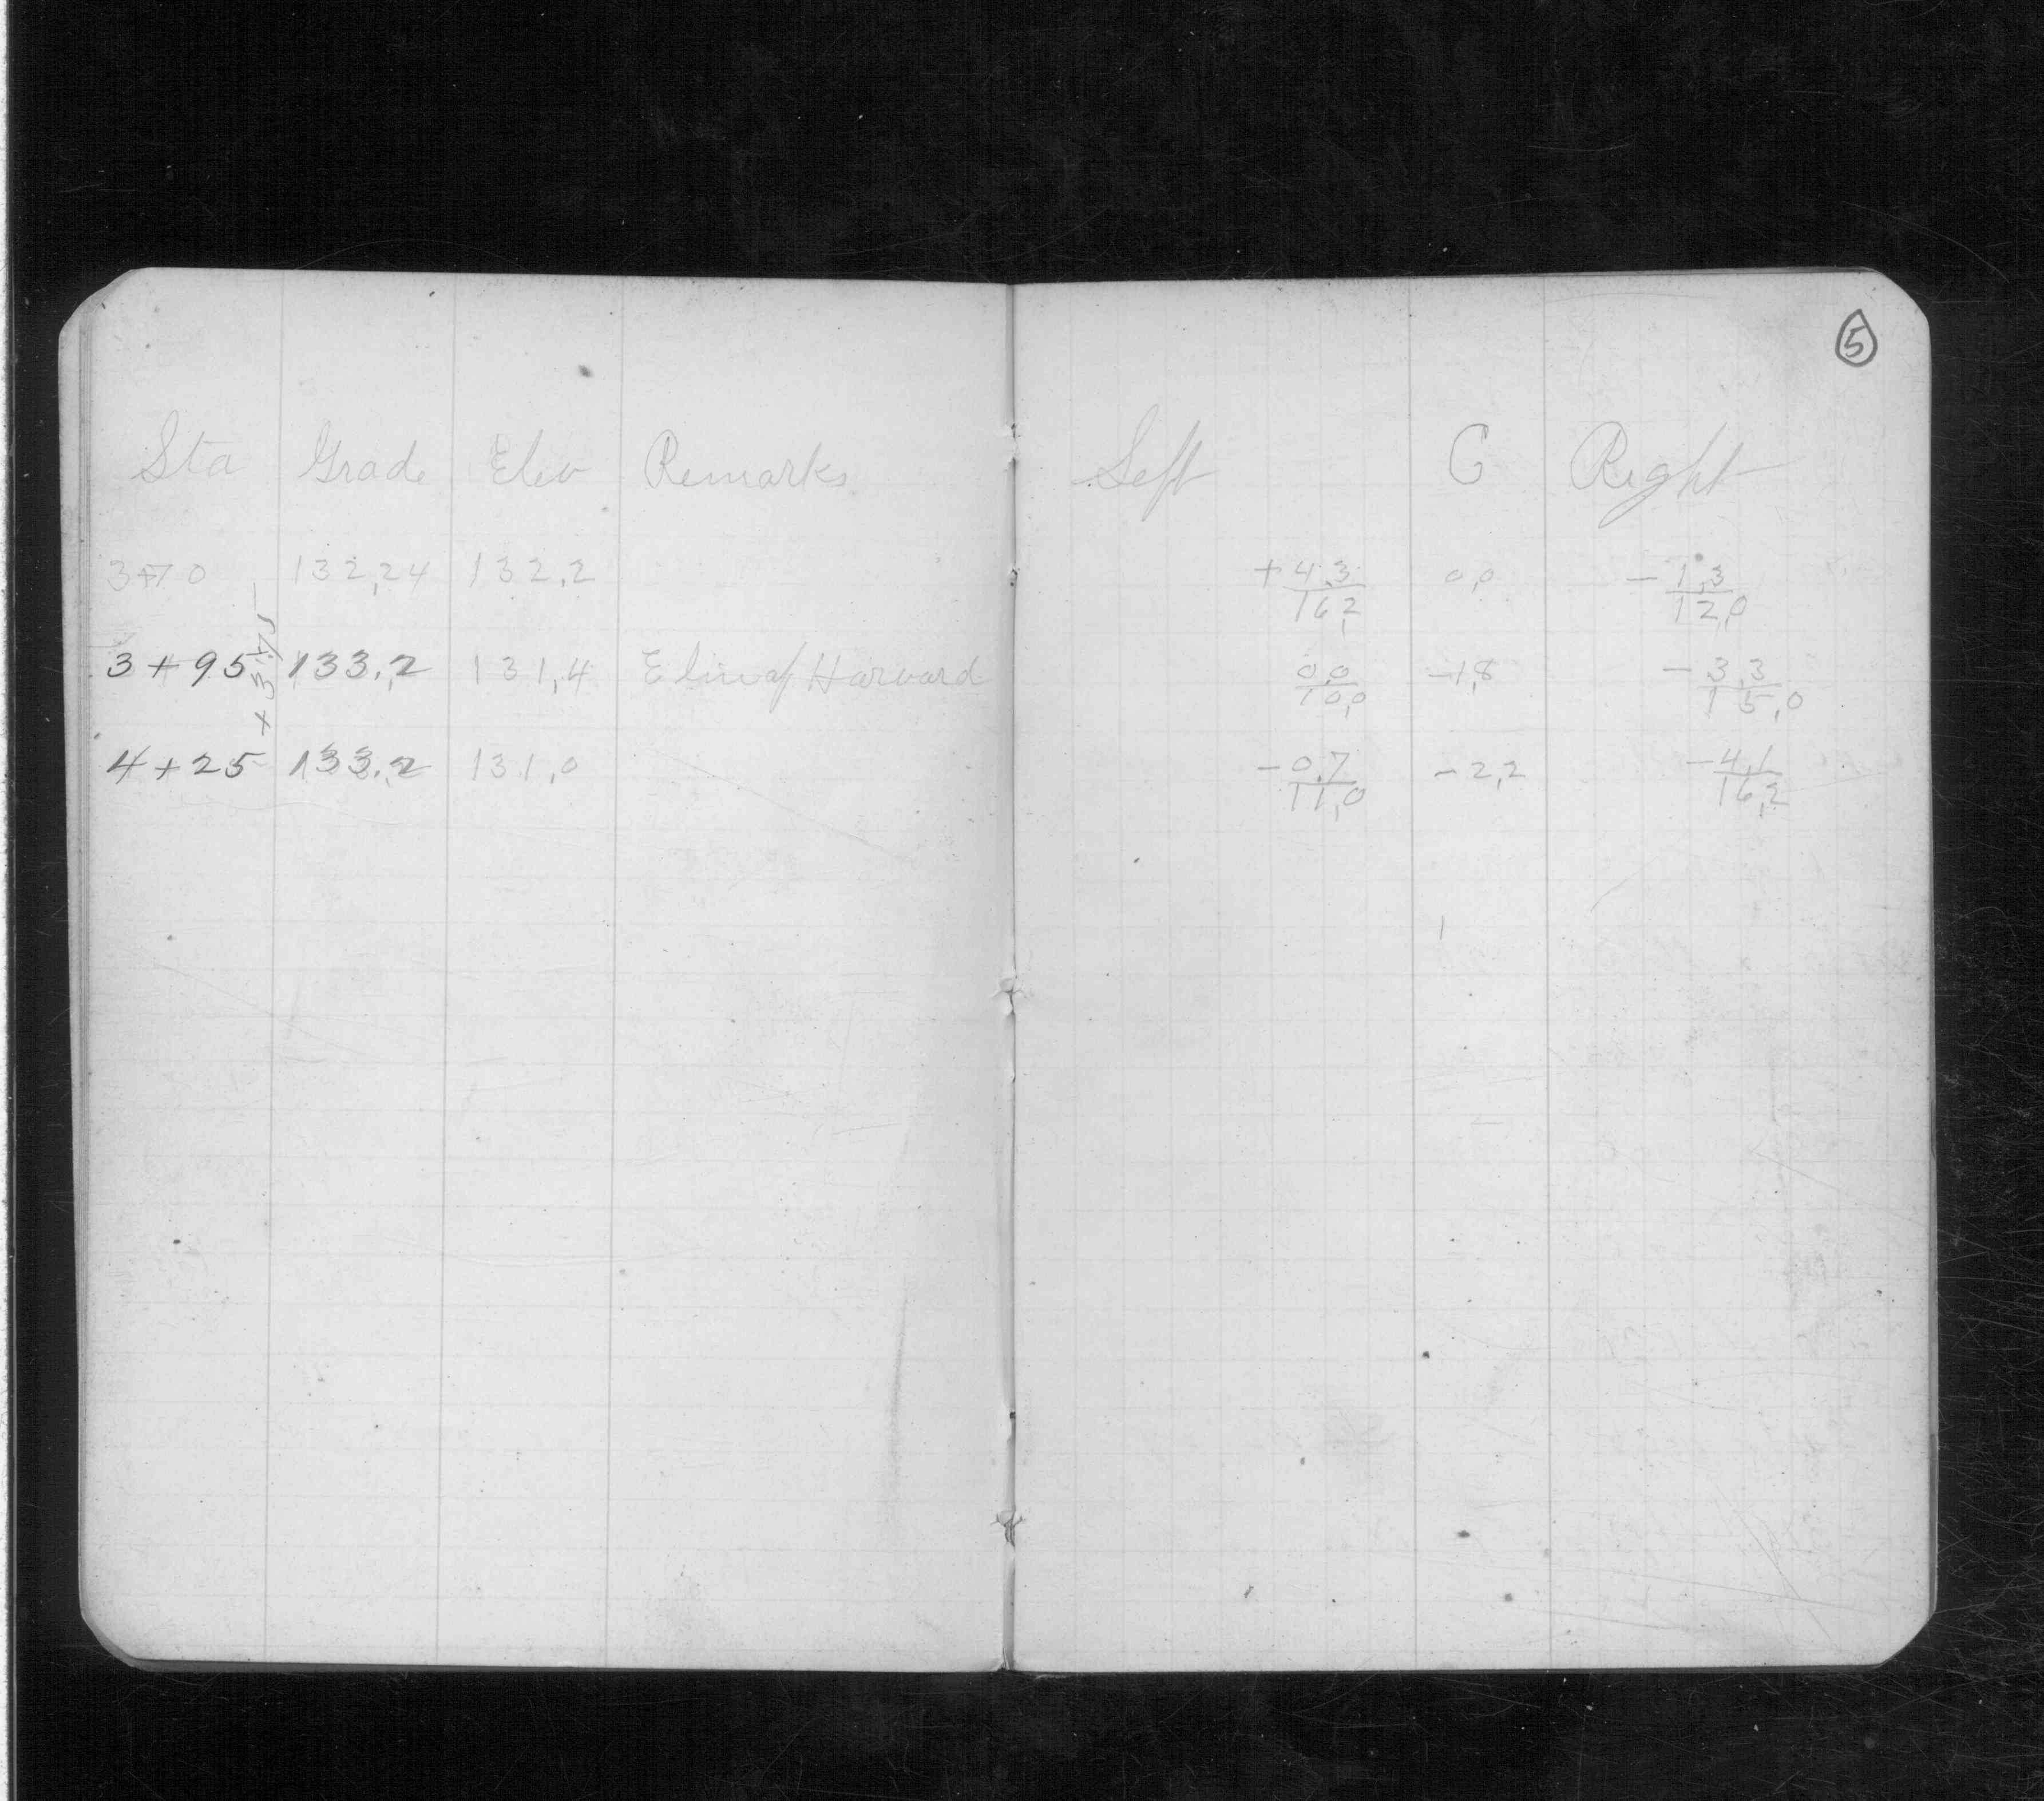 5
Sta Grade Elev Remarks Left C Right
3+70 132,24 132,2 +4,3/16,2 0,0 -1,3/12,0
3+95 133.2 131,4 E line of Harvard 0,0/10,0 -1,8 -3,3/15,0
4+25 133.2 131,0 -0,7/11,0 -2,2 -4,1/16,2